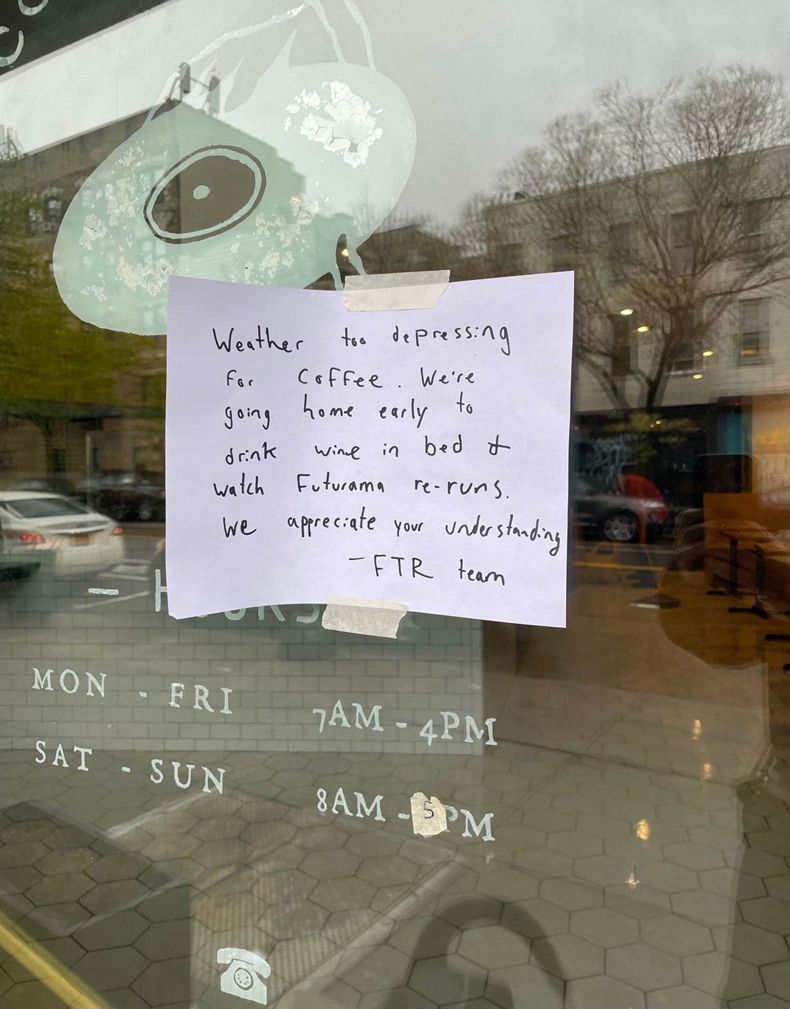 Weather too depressing
for coffee. We're
going home early to
drink wine in bed &
watch Futurama re-runs.
We appreciate your understanding
-FTR team
- HOURS
MON - FRI 7AM - 4PM
SAT - SUN 8AM - 5PM